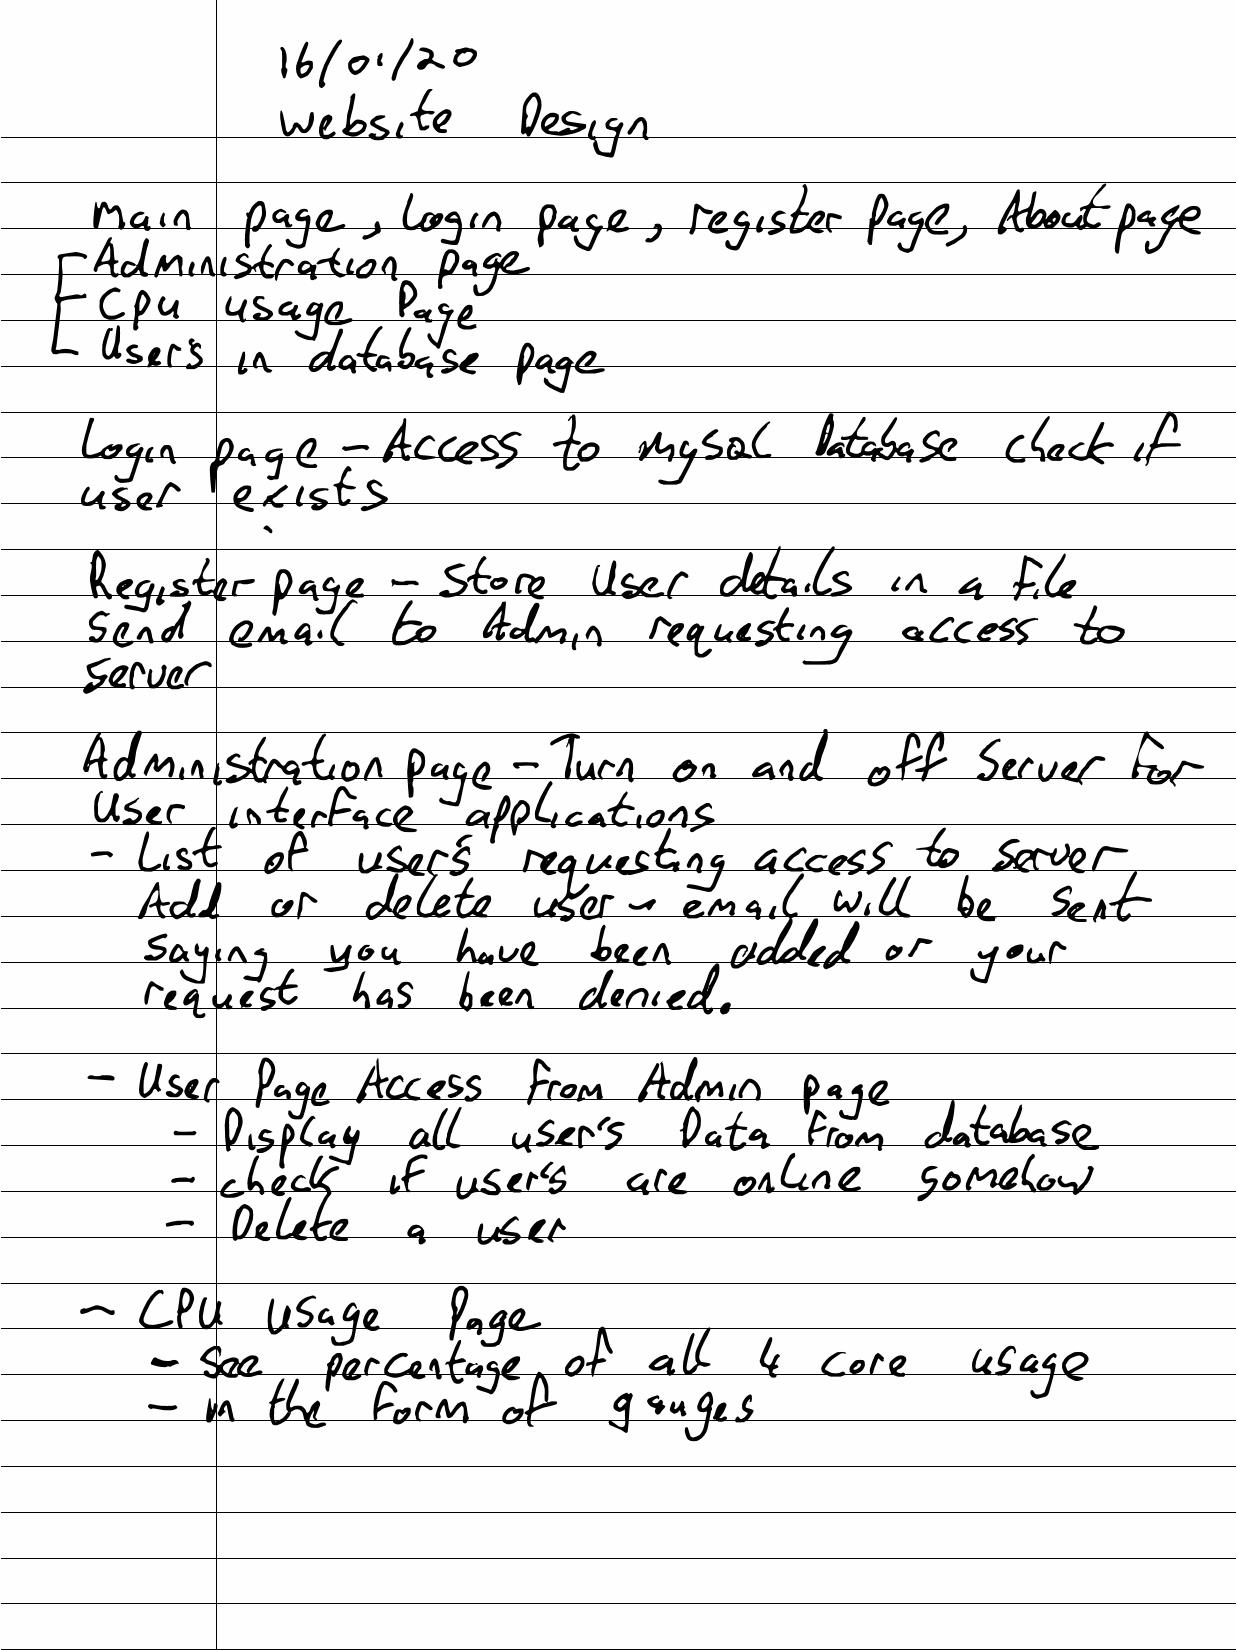 16/01/20
Website Design
Main page, Login page, register page, About page
Administration page
Cpu usage Page
User's in database page
Login page - Access to mysql Database check if
user exists
Register page - Store User details in a file
Send email to Admin requesting access to
server
Administration page - Turn on and off Server for
User interface applications
- List of user's requesting access to server
Add or delete user - email will be sent
saying you have been added or your
request has been denied.
- User Page Access from Admin page
- Display all user's Data from database
- check if user's are online somehow
- Delete a user
- CPU usage Page
- See percentage of all 4 core usage
- in the form of gauges